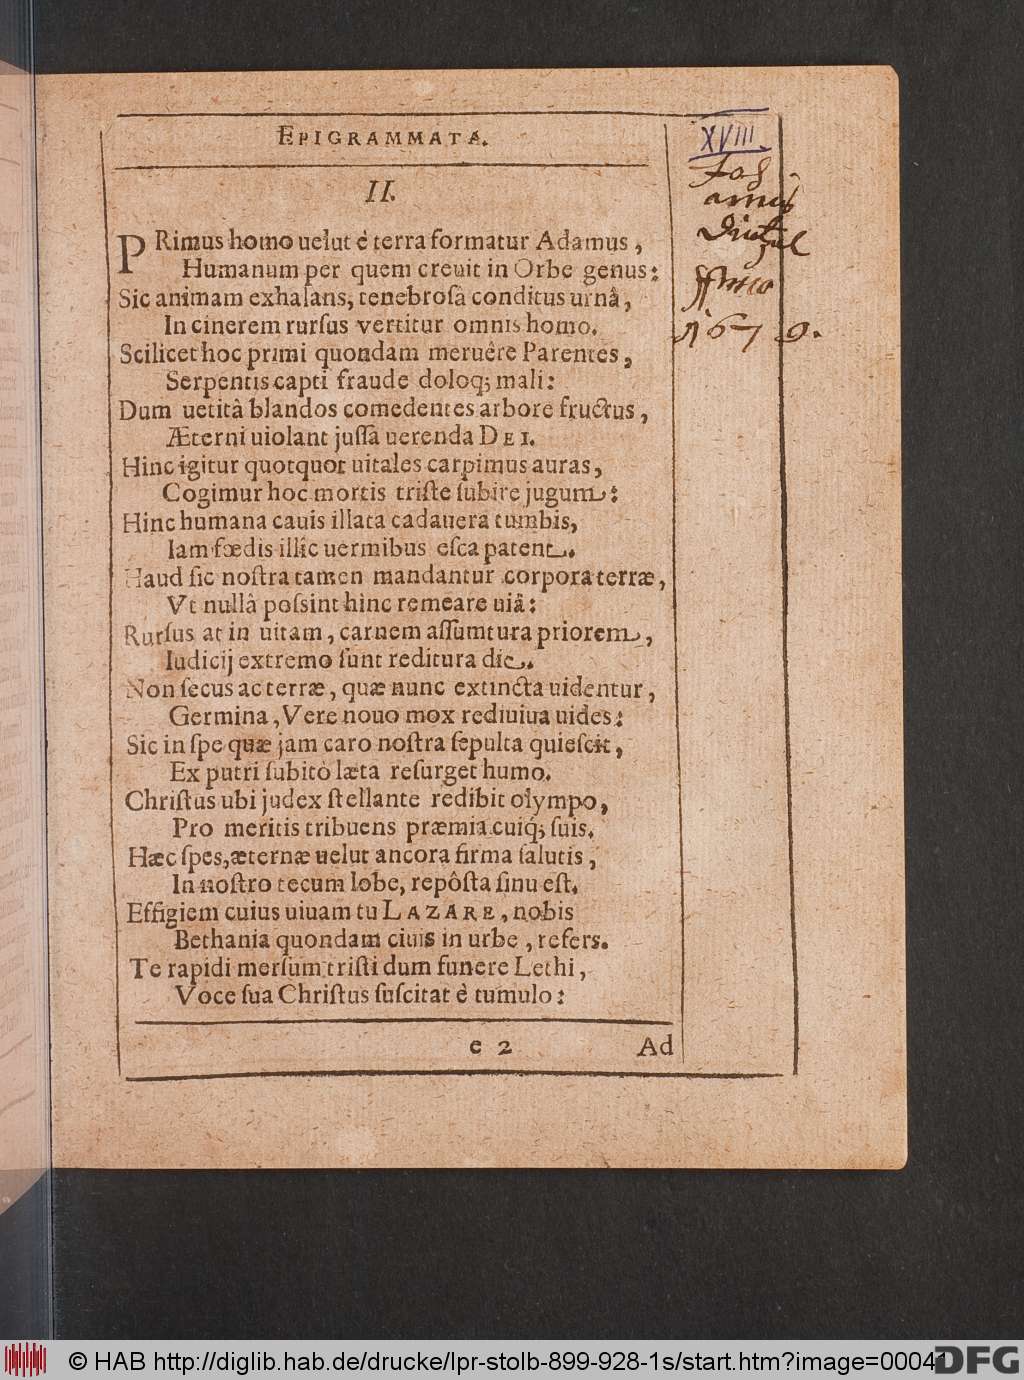 EPIGRAMMATA.
XVIII.
II.
PRimus homo uelut è terra formatur Adamus,
Humanum per quem creuit in Orbe genus:
Sic animam exhalans, tenebrosâ conditus urnâ,
In cinerem rursus vertitur omnis homo.
Scilicet hoc primi quondam meruêre Parentes,
Serpentis capti fraude doloq; mali:
Dum uetitâ blandos comedentes arbore fructus,
Æterni uiolant jussa uerenda DEI.
Hinc igitur quotquot uitales carpimus auras,
Cogimur hoc mortis triste subire jugum:
Hinc humana cauis illata cadauera tumbis,
Iam fœdis illîc uermibus esca patent.
Haud sic nostra tamen mandantur corpora terræ,
Vt nullâ possint hinc remeare uiâ:
Rursus at in uitam, carnem assumtura priorem,
Iudicij extremo sunt reditura die.
Non secus ac terræ, quæ nunc extincta uidentur,
Germina, Vere nouo mox rediuiua uides:
Sic in spe quæ jam caro nostra sepulta quiescit,
Ex putri subitò læta resurget humo.
Christus ubi judex stellante redibit olympo,
Pro meritis tribuens præmia cuiq; suis.
Hæc spes, æternæ uelut ancora firma salutis,
In nostro tecum lobe, repôsta sinu est.
Effigiem cuius uiuam tu LAZARE, nobis
Bethania quondam ciuis in urbe, refers.
Te rapidi mersum tristi dum funere Lethi,
Voce sua Christus suscitat è tumulo:
e 2 Ad
© HAB http://diglib.hab.de/drucke/lpr-stolb-899-928-1s/start.htm?image=00041
DFG